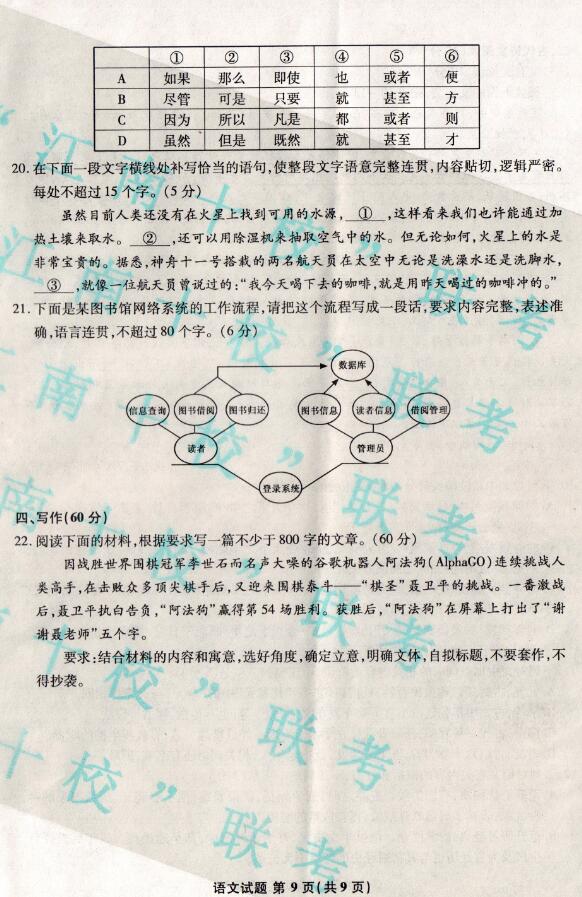 ① ② ③ ④ ⑤ ⑥
A 如果 那么 即使 也 或者 便
B 尽管 可是 只要 就 甚至 方
C 因为 所以 凡是 都 或者 则
D 虽然 但是 既然 就 甚至 才
20. 在下面一段文字横线处补写恰当的语句,使整段文字语意完整连贯,内容贴切,逻辑严密。
每处不超过 15 个字。(5 分)
虽然目前人类还没有在火星上找到可用的水源, ① ,这样看来我们也许能通过加
热土壤来取水。 ② ,还可以用除湿机来抽取空气中的水。但无论如何,火星上的水是
非常宝贵的。据悉,神舟十一号搭载的两名航天员在太空中无论是洗澡水还是洗脚水,
③ ,就像一位航天员曾说过的:“我今天喝下去的咖啡,就是用昨天喝过的咖啡冲的。”
21. 下面是某图书馆网络系统的工作流程,请把这个流程写成一段话,要求内容完整,表述准
确,语言连贯,不超过 80 个字。(6 分)
数据库
信息查询 图书借阅 图书归还 图书信息 读者信息 借阅管理
读者 管理员
登录系统
四、写作(60 分)
22. 阅读下面的材料,根据要求写一篇不少于 800 字的文章。(60 分)
因战胜世界围棋冠军李世石而名声大噪的谷歌机器人阿法狗(AlphaGO)连续挑战人
类高手,在击败众多顶尖棋手后,又迎来围棋泰斗——“棋圣”聂卫平的挑战。一番激战
后,聂卫平执白告负,“阿法狗”赢得第 54 场胜利。获胜后,“阿法狗”在屏幕上打出了“谢
谢聂老师”五个字。
要求:结合材料的内容和寓意,选好角度,确定立意,明确文体,自拟标题,不要套作,不
得抄袭。
语文试题 第 9 页(共 9 页)
“江南十校”联考
江南十校”联考
南十校”联考
南十校”联考
十校”联考
十校”联考